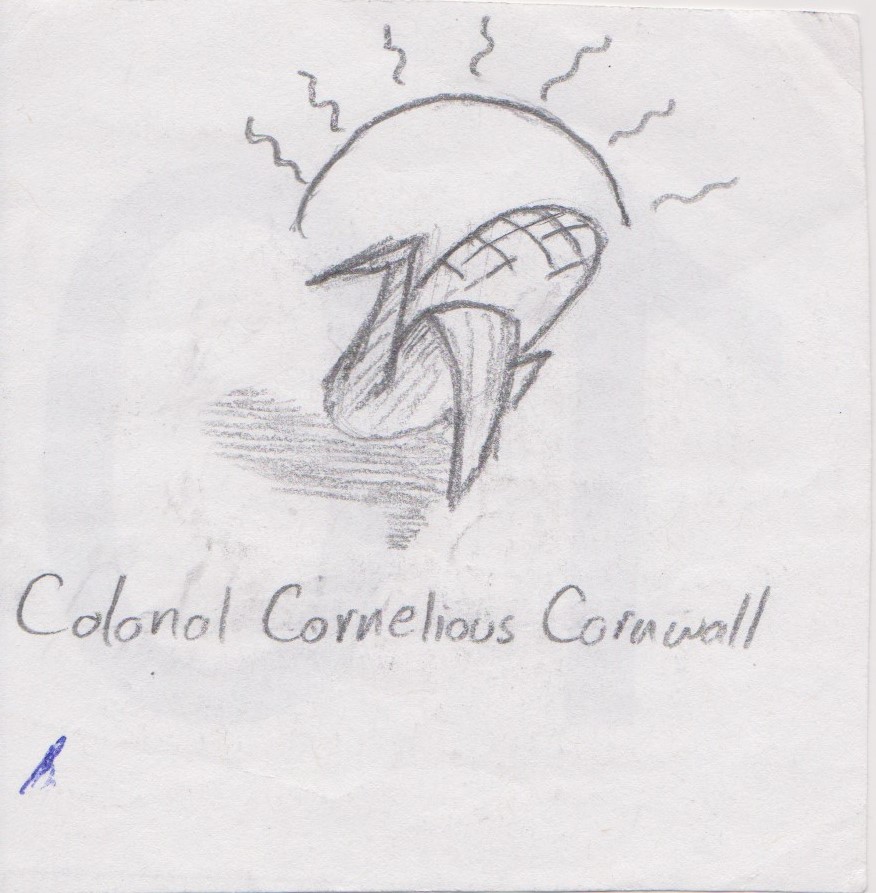 Colonol Cornelious Cornwall